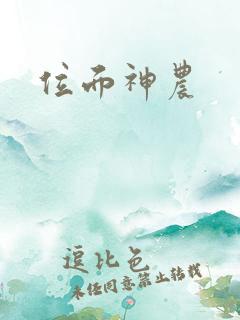 位而神農
逗比色
未经同意禁止转载